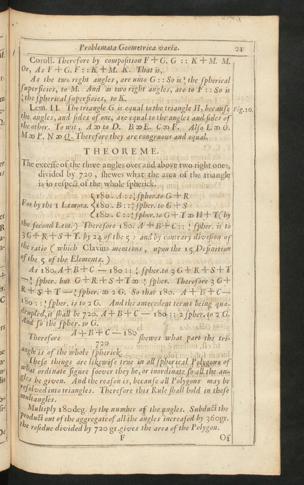 Problemata Geometrica varia. 21
Coroll. Therefore by composition F+G. G :: K+M. M.
Or, As F+G. F :: K+M. K. That is,
As the two right angles, are unto G :: So is ½ the spherical
superficies, to M. And as two right angles, are to F :: So is
½ the spherical superficies, to K.
Lem. II. The triangle G is equal to the triangle H, because Fig. 20.
the angles, and sides of one, are equal to the angles and sides of
the other. To wit, A ∞ to D. B ∞ E. C ∞ F. Also L ∞ O.
M ∞ P. N ∞ Q. Therefore they are congruous and equal.
THEOREME.
The excesse of the three angles over and above two right ones,
divided by 720, shewes what the area of the triangle
is in respect of the whole spherick.
180. A :: ½ spher. to G+R
For by the 1 Lemma. 180. B :: ½ spher. to G+S
180. C :: ½ spher. to G+T ∞ H+T (by
the second Lem.) Therefore 180. A+B+C :: ½ spher. is to
3G+R+S+T. by 24 of the 5 : and by contrary division of
the ratio (which Clavius mentions, upon the 15 Definition
of the 5 of the Elements.)
As 180. A+B+C—180 :: ½ spher. to 3G+R+S+T
—½ spher. but G+R+S+T ∞ ½ spher. Therefore 3G+
R+S+T—½ spher. ∞ 2G. So that 180. A+B+C—
180 :: ½ spher. is to 2G. And the antecedent terms being qua-
drupled, it shall be 720. A+B+C—180 :: 2 spher. to 2G.
And so the spher. to G.
Therefore A+B+C—180 shewes what part the tri-
720
angle is of the whole spherick.
These things are likewise true in all spherical Polygons of
what ordinate figure soever they be, or inordinate so all the an-
gles be given. And the reason is, because all Polygons may be
resolved into triangles. Therefore this Rule shall hold in those
multangles.
Multiply 180 deg. by the number of the angles. Subduct the
product out of the aggregate of all the angles increased by 360 gr.
the residue divided by 720 gr. gives the area of the Polygon.
F Of